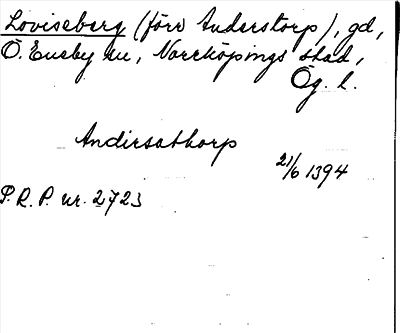 Loviseberg (förr Anderstorp), gd,
Ö. Eneby sn, Norrköpings stad,
Ög. l.
Andirsathorp
21/6 1394
P.R.P. nr. 2723